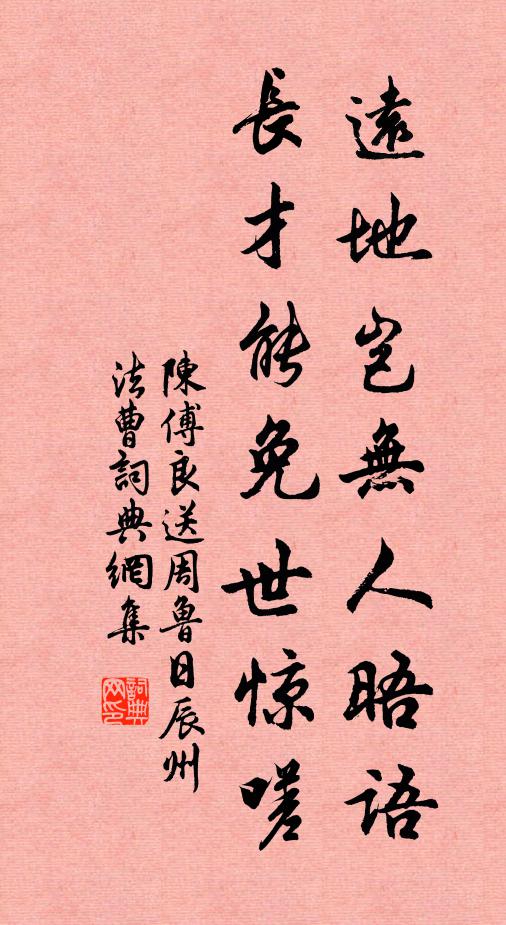 遠地豈無人晤語
長才能免世惊嗟
陳傅良送周魯日辰州
法曹詞典網集
詞典網印